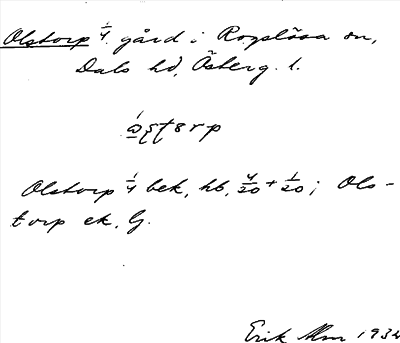 Olstorp 1/4 gård i Rogslösa sn,
Dals hd, Österg. l.
Olstorp 1/4 bek, hb, 4/20 + 1/20; Ols-
torp ek. G.
Erik Alm 1934